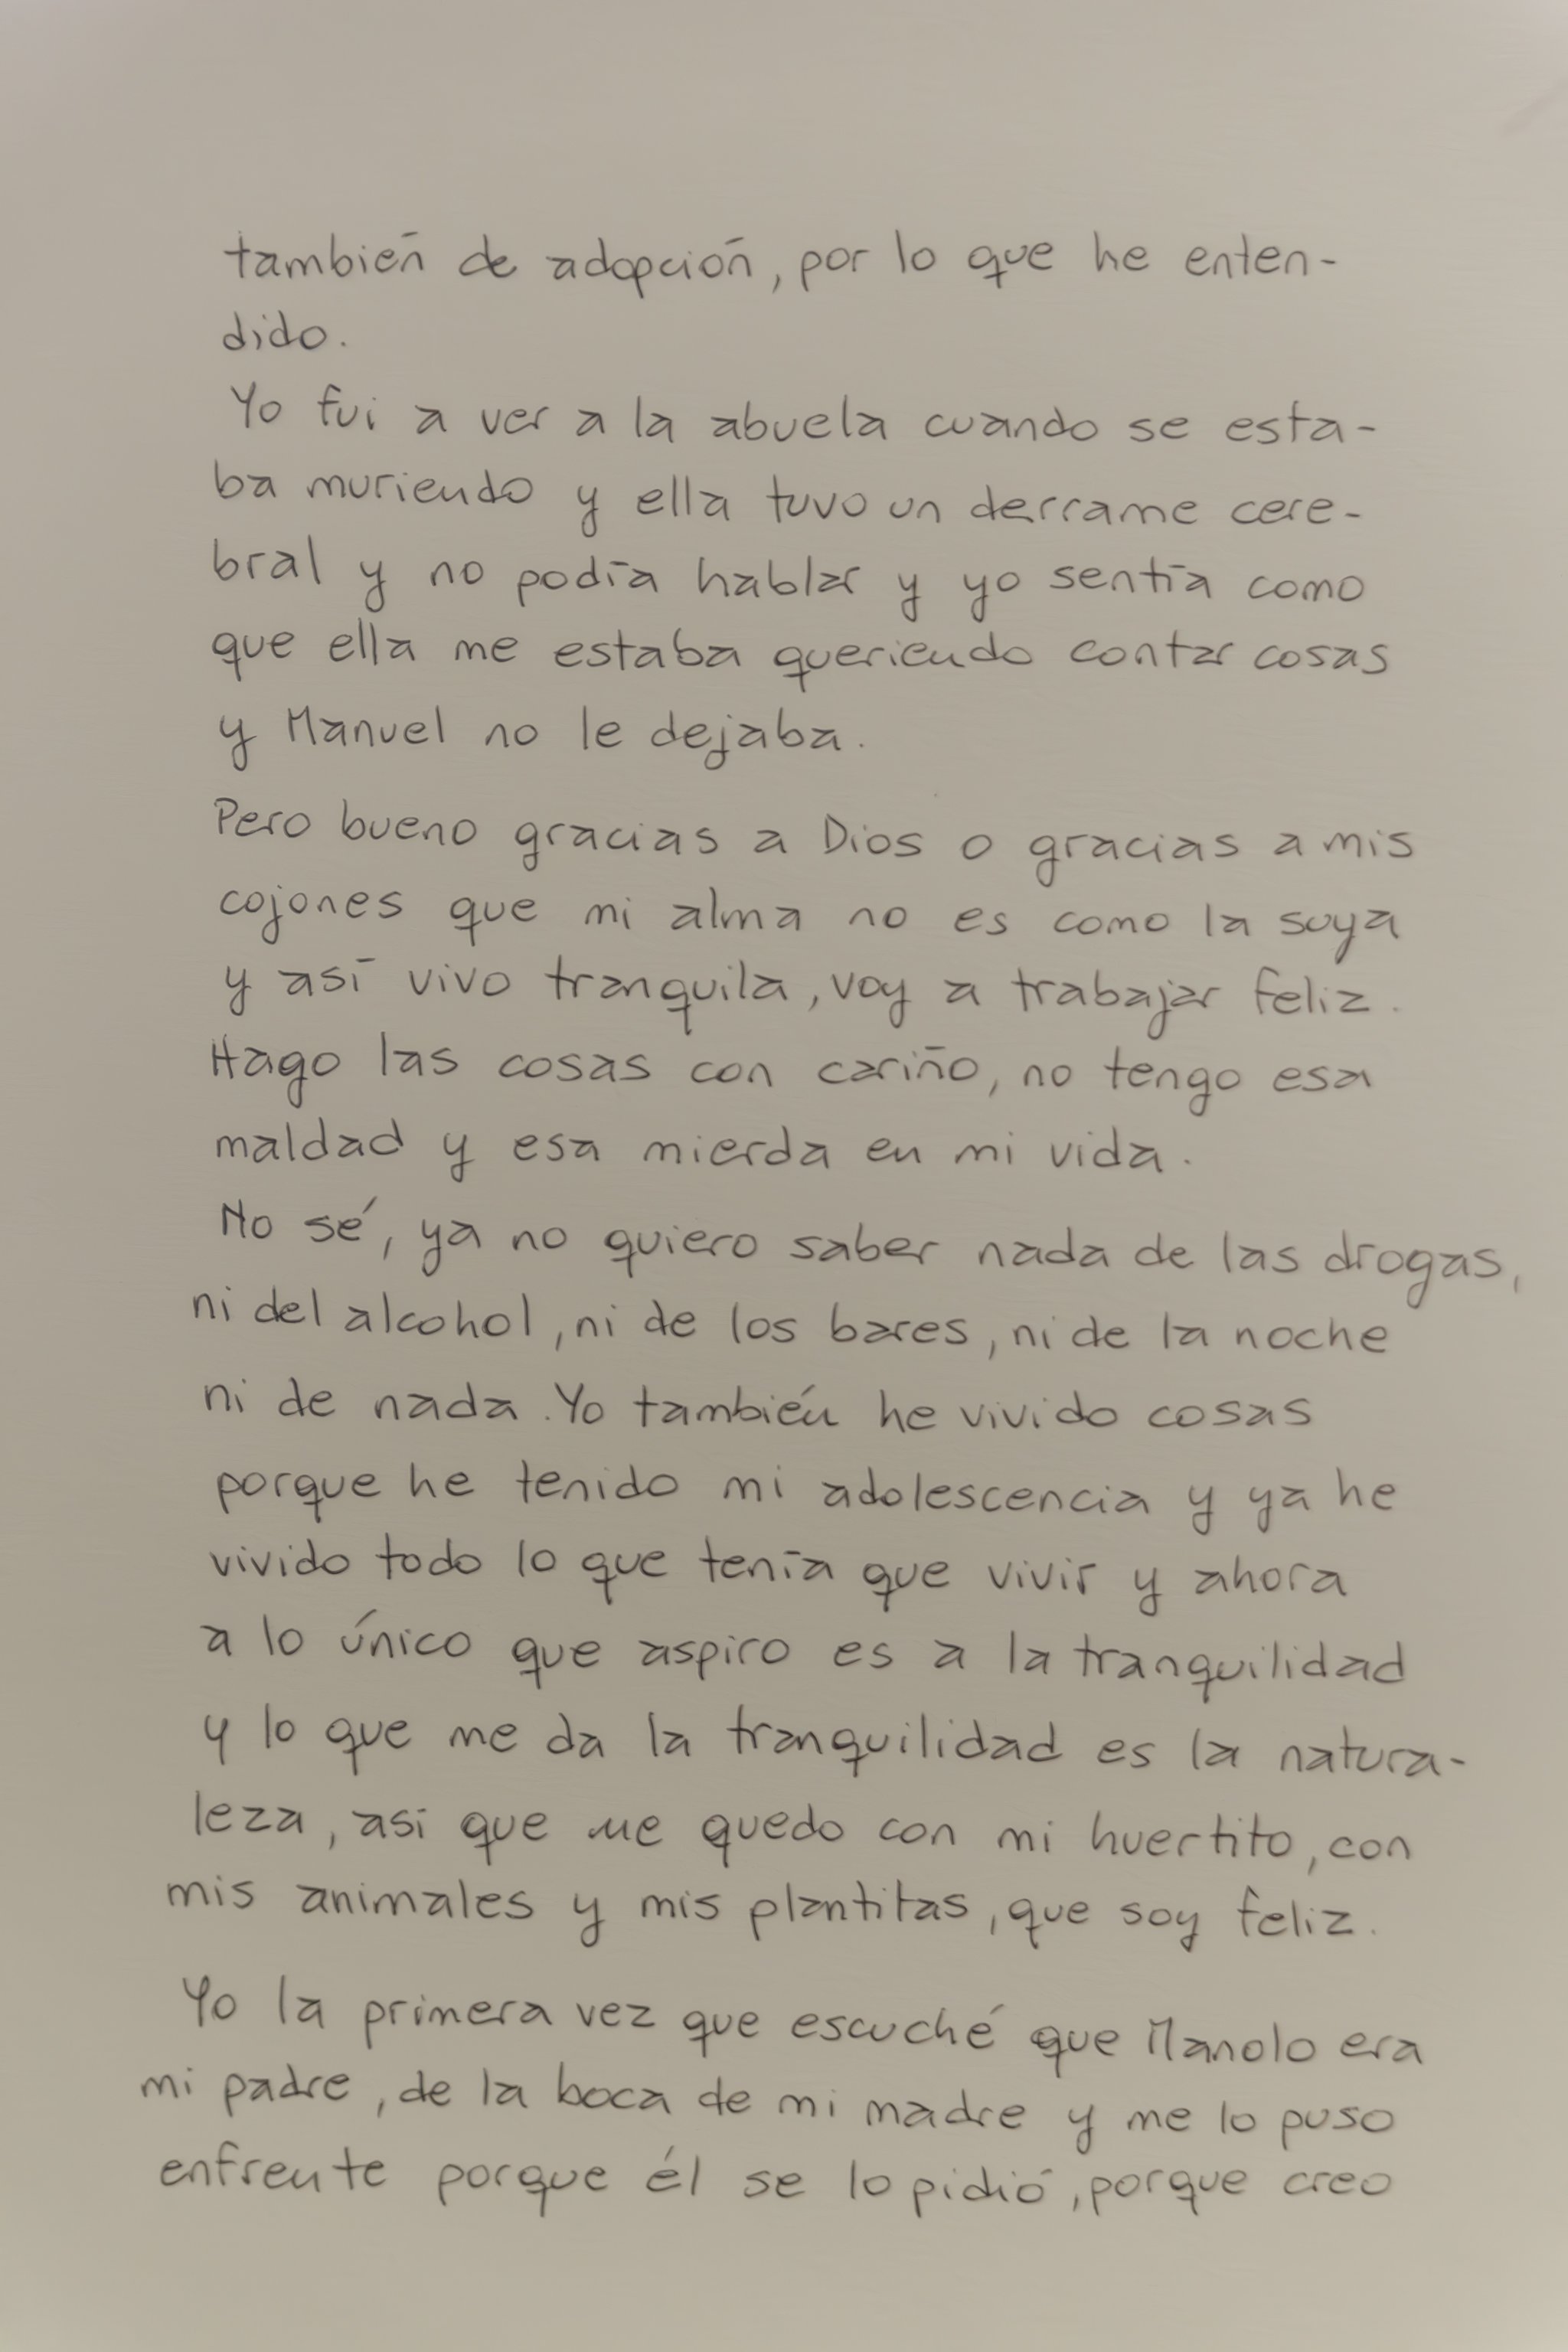 también de adopción, por lo que he enten-
dido.
Yo fui a ver a la abuela cuando se esta-
ba muriendo y ella tuvo un derrame cere-
bral y no podía hablar y yo sentía como
que ella me estaba queriendo contar cosas
y Manuel no le dejaba.
Pero bueno gracias a Dios o gracias a mis
cojones que mi alma no es como la suya
y así vivo tranquila, voy a trabajar feliz.
Hago las cosas con cariño, no tengo esa
maldad y esa mierda en mi vida.
No sé, ya no quiero saber nada de las drogas,
ni del alcohol, ni de los bares, ni de la noche
ni de nada. Yo también he vivido cosas
porque he tenido mi adolescencia y ya he
vivido todo lo que tenía que vivir y ahora
a lo único que aspiro es a la tranquilidad
y lo que me da la tranquilidad es la natura-
leza, asi que me quedo con mi huertito, con
mis animales y mis plantitas, que soy feliz.
Yo la primera vez que escuché que Manolo era
mi padre, de la boca de mi madre y me lo puso
enfrente porque él se lo pidió, porque creo